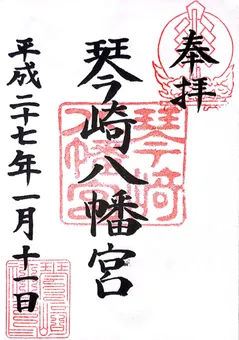 奉拝
琴崎八幡宮
平成二十七年一月十一日
琴崎八幡宮